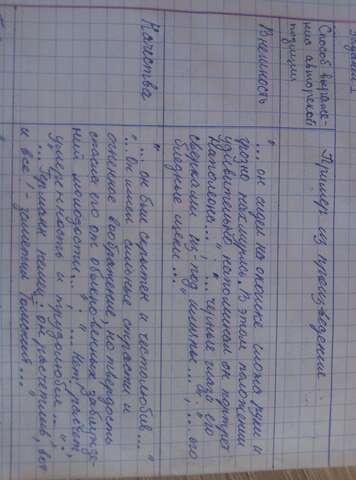 Задание 1
Способ выраже-
ния авторской
позиции
Пример из произведения
Внешность
"... он сидел на окошке сложа руки и
грозно нахмурясь. В этом положении
удивительно напоминал он портрет
Наполеона...", "... чёрные глаза его
сверкали из-под шляпы...", "... его
бледные щеки...
Качества
"... он был скрытен и честолюбив..."
"... Он имел сильные страсти и
огненное воображение, но твердость
спасла его от обыкновенных заблужде-
ний молодости...", "... Нет! расчет,
умеренность и трудолюбие...",
"... Германн немец: он расчётлив, вот
и всё! - заметил Томский...